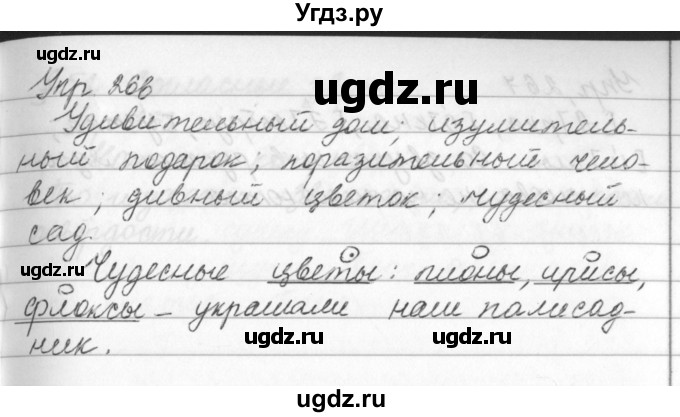 Угдз.ру
ugdz.ru ugdz.ru
Упр 266
ugdz.ru
Удивительный дом; изумитель-
ный подарок; поразительный чело-
век; дивный цветок; чудесный
сад.
ugdz.ru
Чудесные цветы: пионы, ирисы,
флоксы – украшали наш палисад-
ugdz.ru ugdz.ru
ник.
ugdz.ru